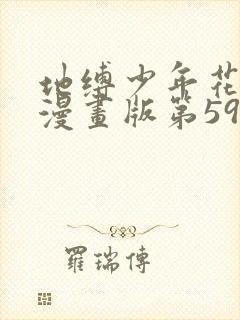 地缚少年花
漫畫版第59
羅瑞傳